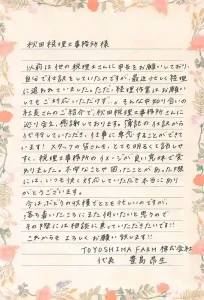 秋田税理士事務所様
以前は他の税理士さんに申告をお願いしており、
自分で仕訳をしていたのですが、最近忙しく経理
に追われていました。ただ、経理作業はお願い
してもご対応いただけず…。そんな中知り合いの
社長さんのご紹介で、秋田税理士事務所さんに
巡り会え、感謝しております。簿記の仕訳から
代行していただき、仕事に専念することができて
います！スタッフの皆さんも、とても明るくて話しや
すく、税理士事務所のイメージが良い意味で変
わりました。不安なことや困ったことがあった際
には、いつも快く対応していただき本当にあり
がとうございます。
今はぶどうの収穫でとても忙しいのですが、
落ち着いたころにまた伺いたいと思うので
その際には相談に乗っていただきたいです!!
これからもよろしくお願い致します!!
TOYOSHIMA FARM 株式会社
代表 豊島 昂生